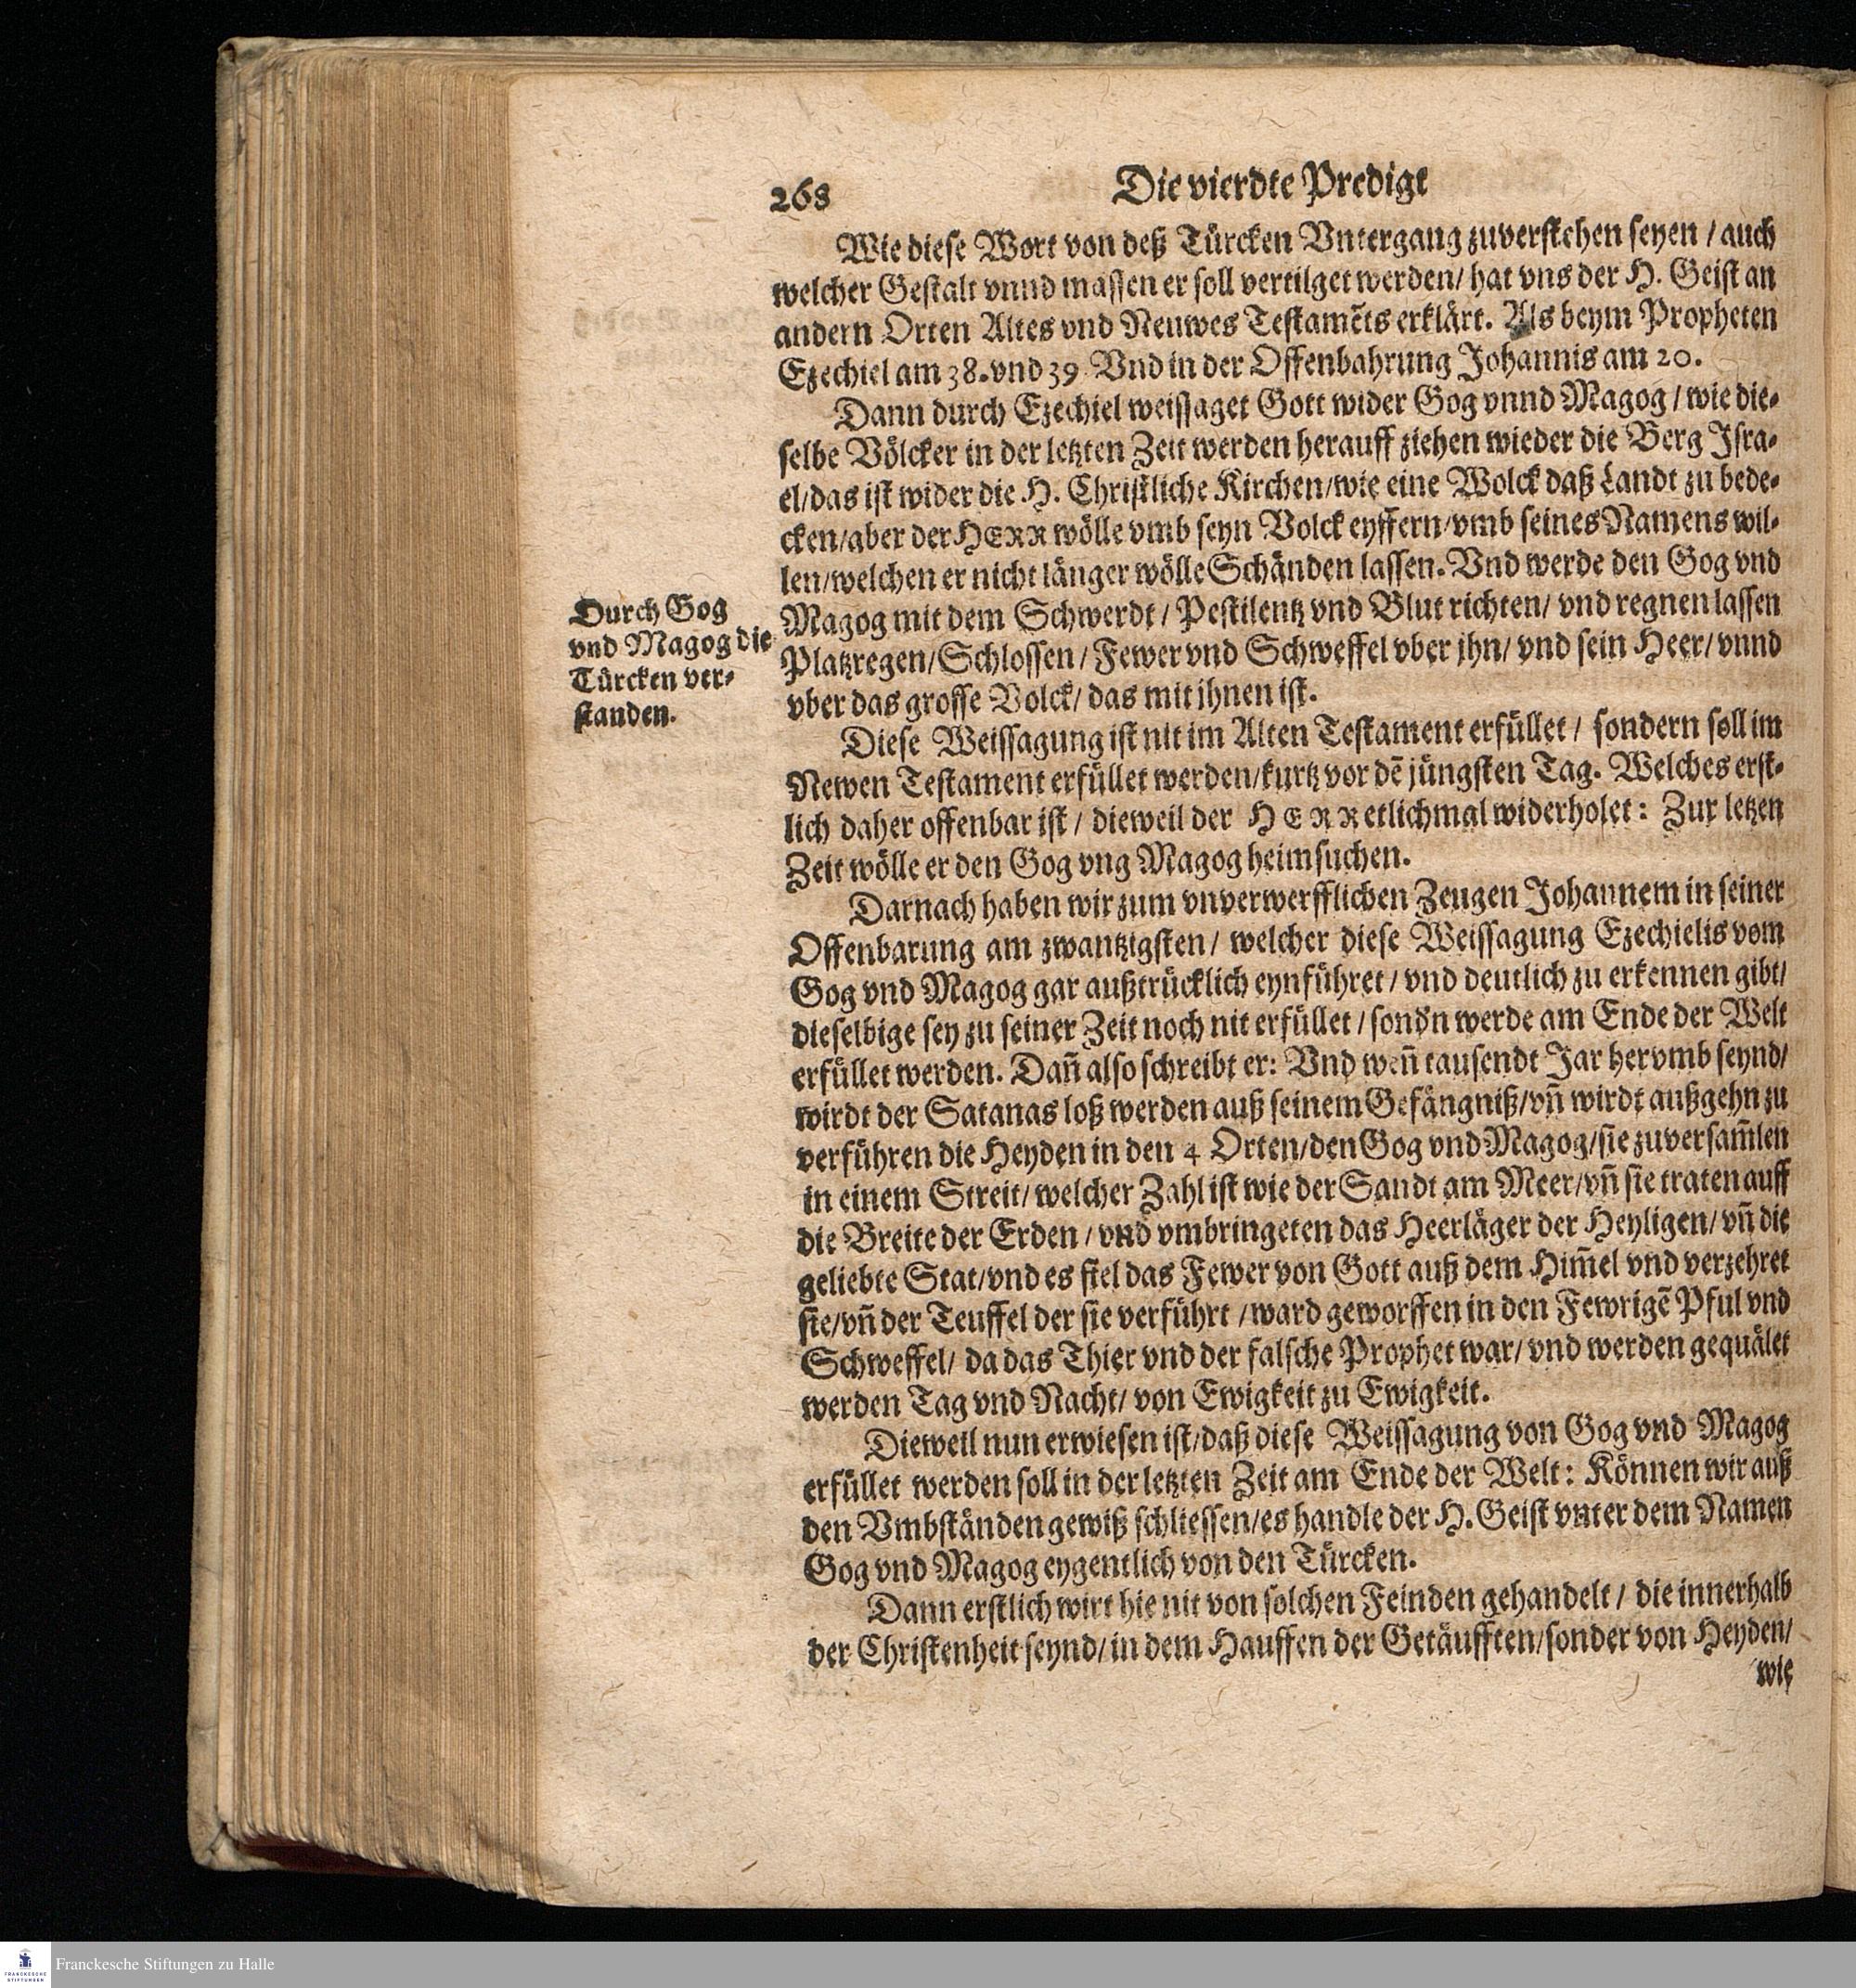 268
Die vierdte Predigt
Wie diese Wort von deß Türcken Vntergang zuverstehen seyen / auch
welcher Gestalt vnnd massen er soll vertilget werden / hat vns der H. Geist an
andern Orten Altes vnd Neuwes Testamẽts erklärt. Als beym Propheten
Ezechiel am 38. vnd 39 Vnd in der Offenbahrung Johannis am 20.
Dann durch Ezechiel weissaget Gott wider Gog vnnd Magog / wie die-
selbe Völcker in der letzten Zeit werden herauff ziehen wieder die Berg Isra-
el / das ist wider die H. Christliche Kirchen / wie eine Wolck daß Landt zu bede-
cken / aber der HERR wölle vmb seyn Volck eyffern / vmb seines Namens wil-
len / welchen er nicht länger wölle Schänden lassen. Vnd werde den Gog vnd
Magog mit dem Schwerdt / Pestilentz vnd Blut richten / vnd regnen lassen
Platzregen / Schlossen / Fewer vnd Schweffel vber jhn / vnd sein Heer / vnnd
vber das grosse Volck / das mit ihnen ist.
Durch Gog
vnd Magog die
Türcken ver-
standen.
Diese Weissagung ist nit im Alten Testament erfüllet / sondern soll im
Newen Testament erfüllet werden / kurtz vor dẽ jüngsten Tag. Welches erst-
lich daher offenbar ist / dieweil der HERR etlichmal widerholet: Zur letzen
Zeit wölle er den Gog vng Magog heimsuchen.
Darnach haben wir zum vnverwerfflichen Zeugen Johannem in seiner
Offenbarung am zwantzigsten / welcher diese Weissagung Ezechielis vom
Gog vnd Magog gar außtrücklich eynführet / vnd deutlich zu erkennen gibt /
dieselbige sey zu seiner Zeit noch nit erfüllet / sondn werde am Ende der Welt
erfüllet werden. Dañ also schreibt er: Vnd weñ tausendt Jar hervmb seynd /
wirdt der Satanas loß werden auß seinem Gefängniß / vñ wirdt außgehn zu
verführen die Heyden in den 4 Orten / den Gog vnd Magog / sie zuversam̃len
in einem Streit / welcher Zahl ist wie der Sandt am Meer / vñ sie traten auff
die Breite der Erden / vnd vmbringeten das Heerläger der Heyligen / vñ die
geliebte Stat / vnd es fiel das Fewer von Gott auß dem Him̃el vnd verzehret
sie / vñ der Teuffel der sie verführt / ward geworffen in den Fewrigẽ Pful vnd
Schweffel / da das Thier vnd der falsche Prophet war / vnd werden gequälet
werden Tag vnd Nacht / von Ewigkeit zu Ewigkeit.
Dieweil nun erwiesen ist / daß diese Weissagung von Gog vnd Magog
erfüllet werden soll in der letzten Zeit am Ende der Welt: Können wir auß
den Vmbständen gewiß schliessen / es handle der H. Geist vnter dem Namen
Gog vnd Magog eygentlich von den Türcken.
Dann erstlich wirt hie nit von solchen Feinden gehandelt / die innerhalb
der Christenheit seynd / in dem Hauffen der Getäufften / sonder von Heyden /
wie
Franckesche Stiftungen zu Halle
FRANCKESCHE
STIFTUNGEN